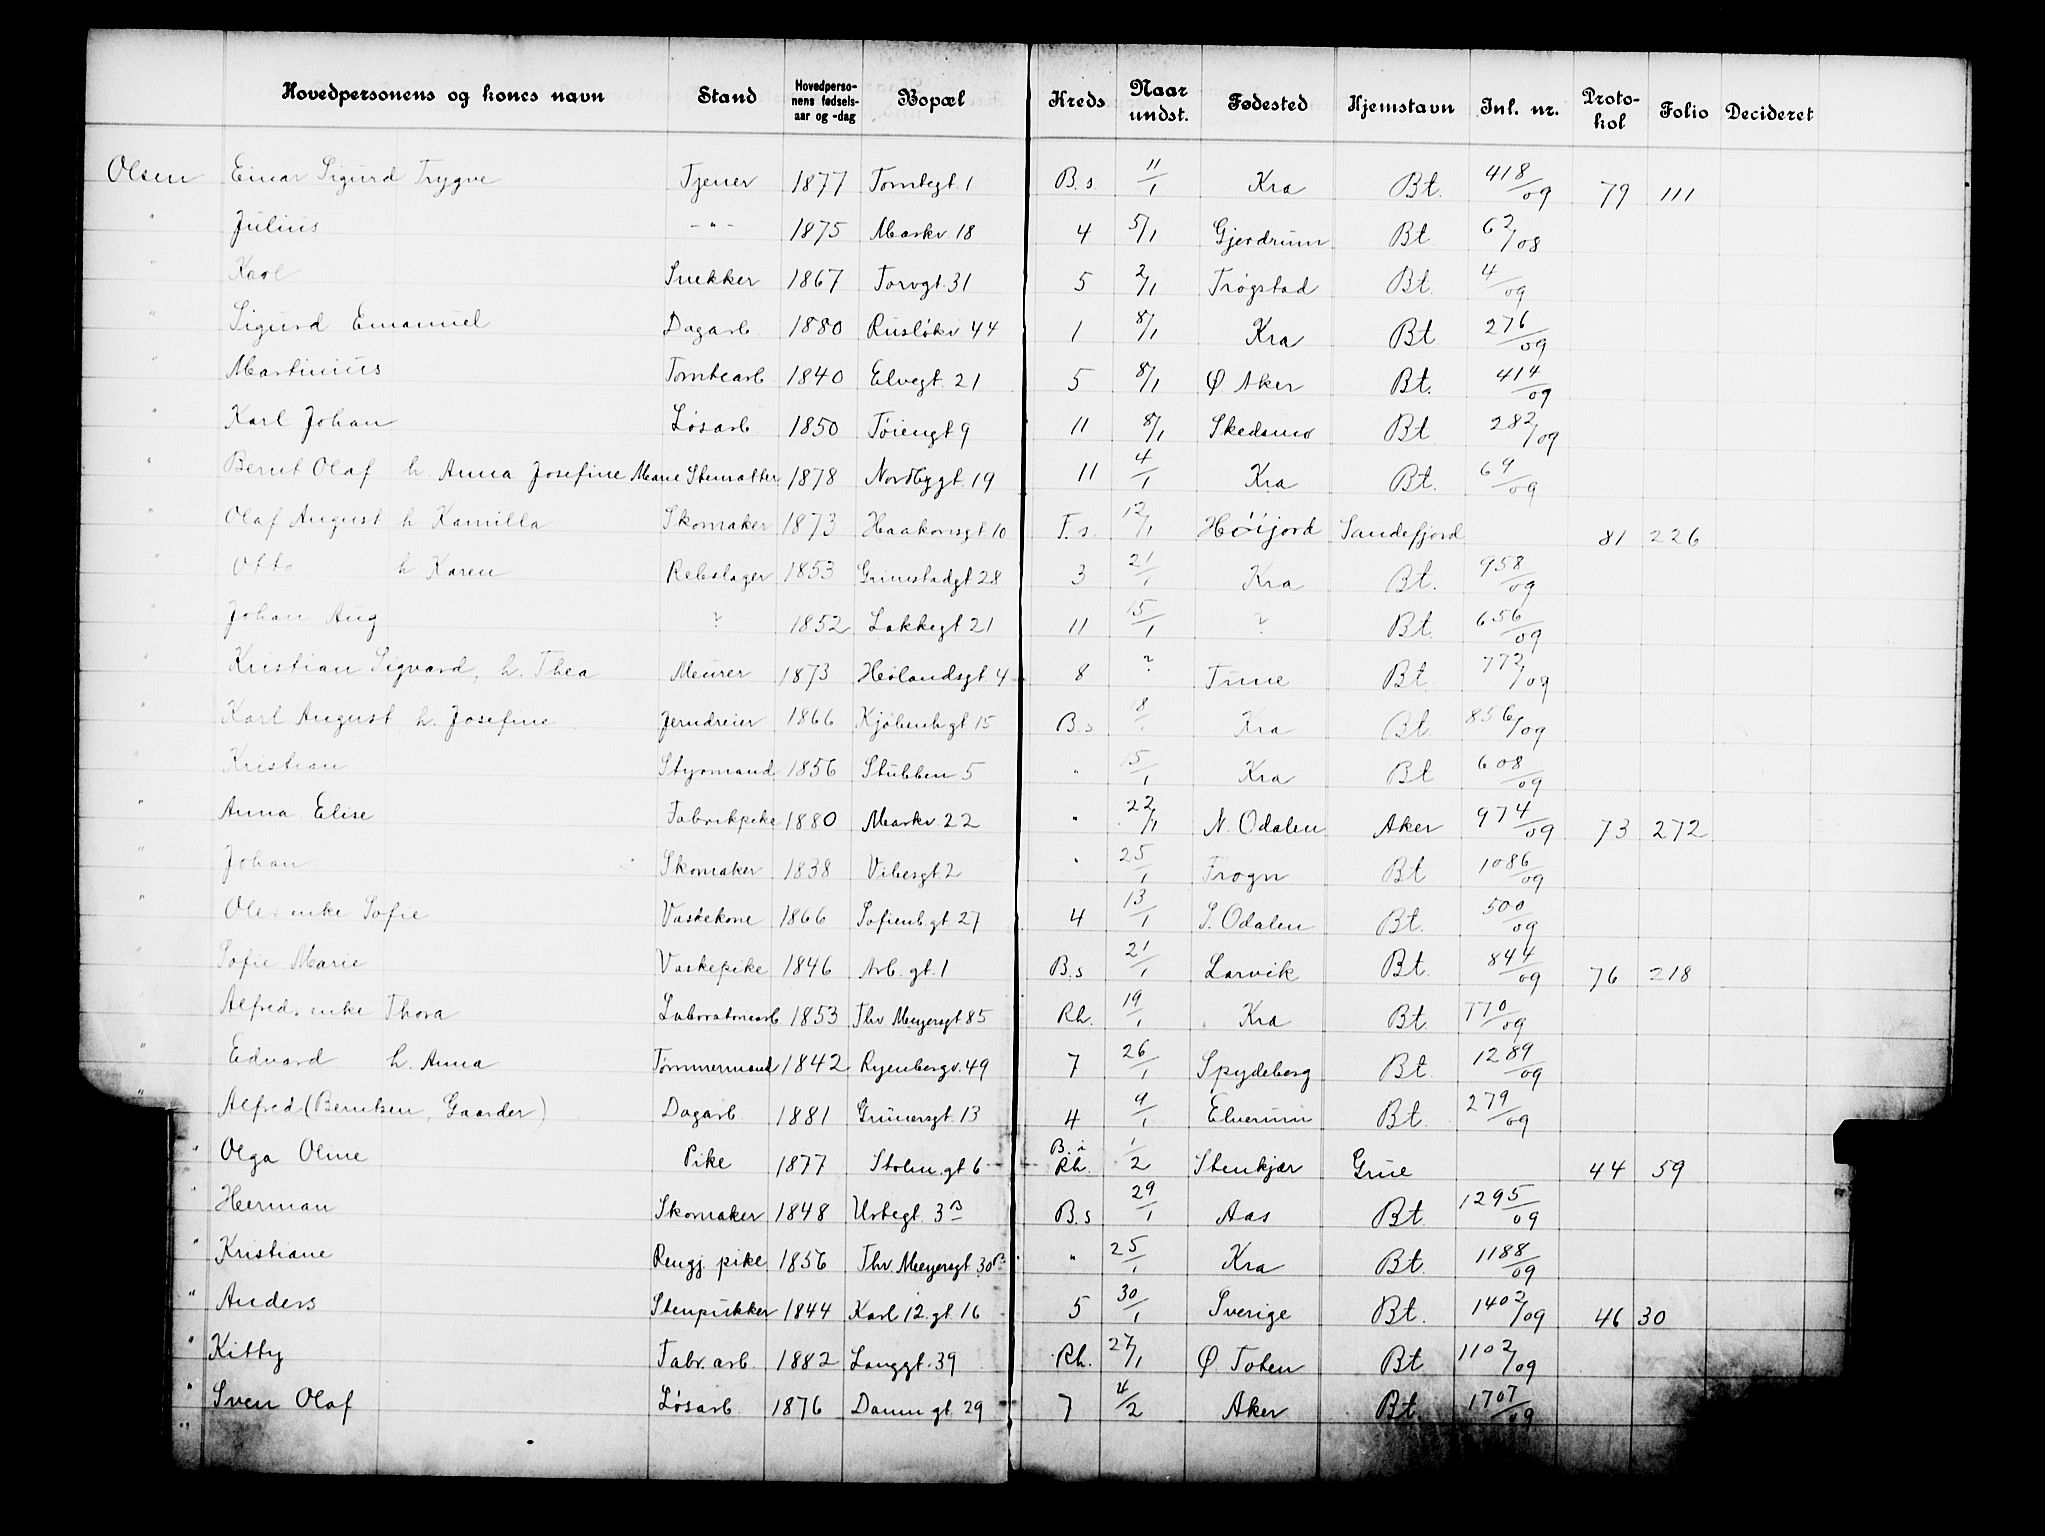 Hovedpersonens og kones navn Stand Hovedperso-nens fødsels-aar og -dag Bopæl Kreds Naar undst. Fødested Hjemstavn Inl. nr. Proto-kol Folio Decideret
Olsen Einar Sigurd Trygve Tjener 1877 Tomtegt. 1 B.s. 11/1 Kra Bt. 418/09 79 111
" Julius -"- 1875 Markv 18 4 5/1 Gjerdrum Bt 62/08
" Karl Snekker 1867 Torvgt. 31 5 2/1 Trøgstad Bt. 4/09
" Sigurd Emanuel Dagarb. 1880 Rusløkv 44 1 8/1 Kra Bt 276/09
" Martinius Tomtearb 1840 Elvegt. 21 5 8/1 Ø. Aker Bt. 414/09
" Karl Johan Løsarb. 1850 Tøiengt 9 11 8/1 Skedsmo Bt 282/09
" Bernt Olaf h. Anna Josefine Marie Stenratter 1878 Nordbygt. 19 11 4/1 Kra Bt. 69/09
" Olaf August h Kamilla Skomaker 1873 Haakonsgt 10 F.s. 12/1 Høijord Sandefjord 81 226
" Otto h Karen Rebslager 1853 Grimstadgt 28 3 21/1 Kra Bt. 958/09
" Johan Aug ? 1852 Lakkegt 21 11 15/1 ? Bt. 656/09
" Kristian Sigvard, h. Thea Meurer 1873 Hølandsgt 4 8 ? Tune Bt 772/09
" Karl August h. Josefine Jerndreier 1866 Kjøbenh gt 15 B.s 18/1 Kra Bt. 856/09
Kristian Styrmand 1856 Stubben 5 " 15/1 Kra Bt 608/09
" Anna Elise Fabrikpike 1880 Markv 22 " 22/1 N. Odalen Aker 974/09 73 272
" Johan Skomaker 1838 Vibesgt. 2 " 25/1 Frogn Bt 1086/09
" Oles enke Sofie Vaskekone 1866 Sofienb. gt 27 4 13/1 S. Odalen Bt. 500/09
" Sofie Marie Vaskepike 1846 Arb. gt. 1 B.s 21/1 Larvik Bt. 844/09 76 218
" Alfreds enke Thora Laboratoriearb 1853 Thv Meyersgt 85 Rh. 19/1 Kra Bt. 770/09
" Edvard h. Anna Tømmermand 1842 Ryenbergv. 49 7 26/1 Spydeberg Bt. 1289/09
" Alfred (Berntsen, Gaarder) Dagarb. 1881 Grünersgt. 13 4 9/1 Elverum Bt. 279/09
" Olga Oline Pike 1877 Stolm. gt 6 B. i Rh. 1/2 Stenkjær Grue 44 59
" Herman Skomaker 1848 Urtegt. 3B B.s 29/1 Aas Bt. 1295/09
" Kristiane Rengj. pike 1856 Thv. Meyersgt 30B " 25/1 Kra Bt. 1188/09
" Anders Stenpukker 1844 Karl 12. gt. 16 5 30/1 Sverige Bt. 1402/09 46 30
" Kitty Fabr. arb. 1882 Langgt. 39 Rh. 27/1 Ø. Toten Bt 1102/09
" Sven Olaf Løsarb. 1876 Damm gt. 29 7 4/2 Aker Bt. 1707/09
"